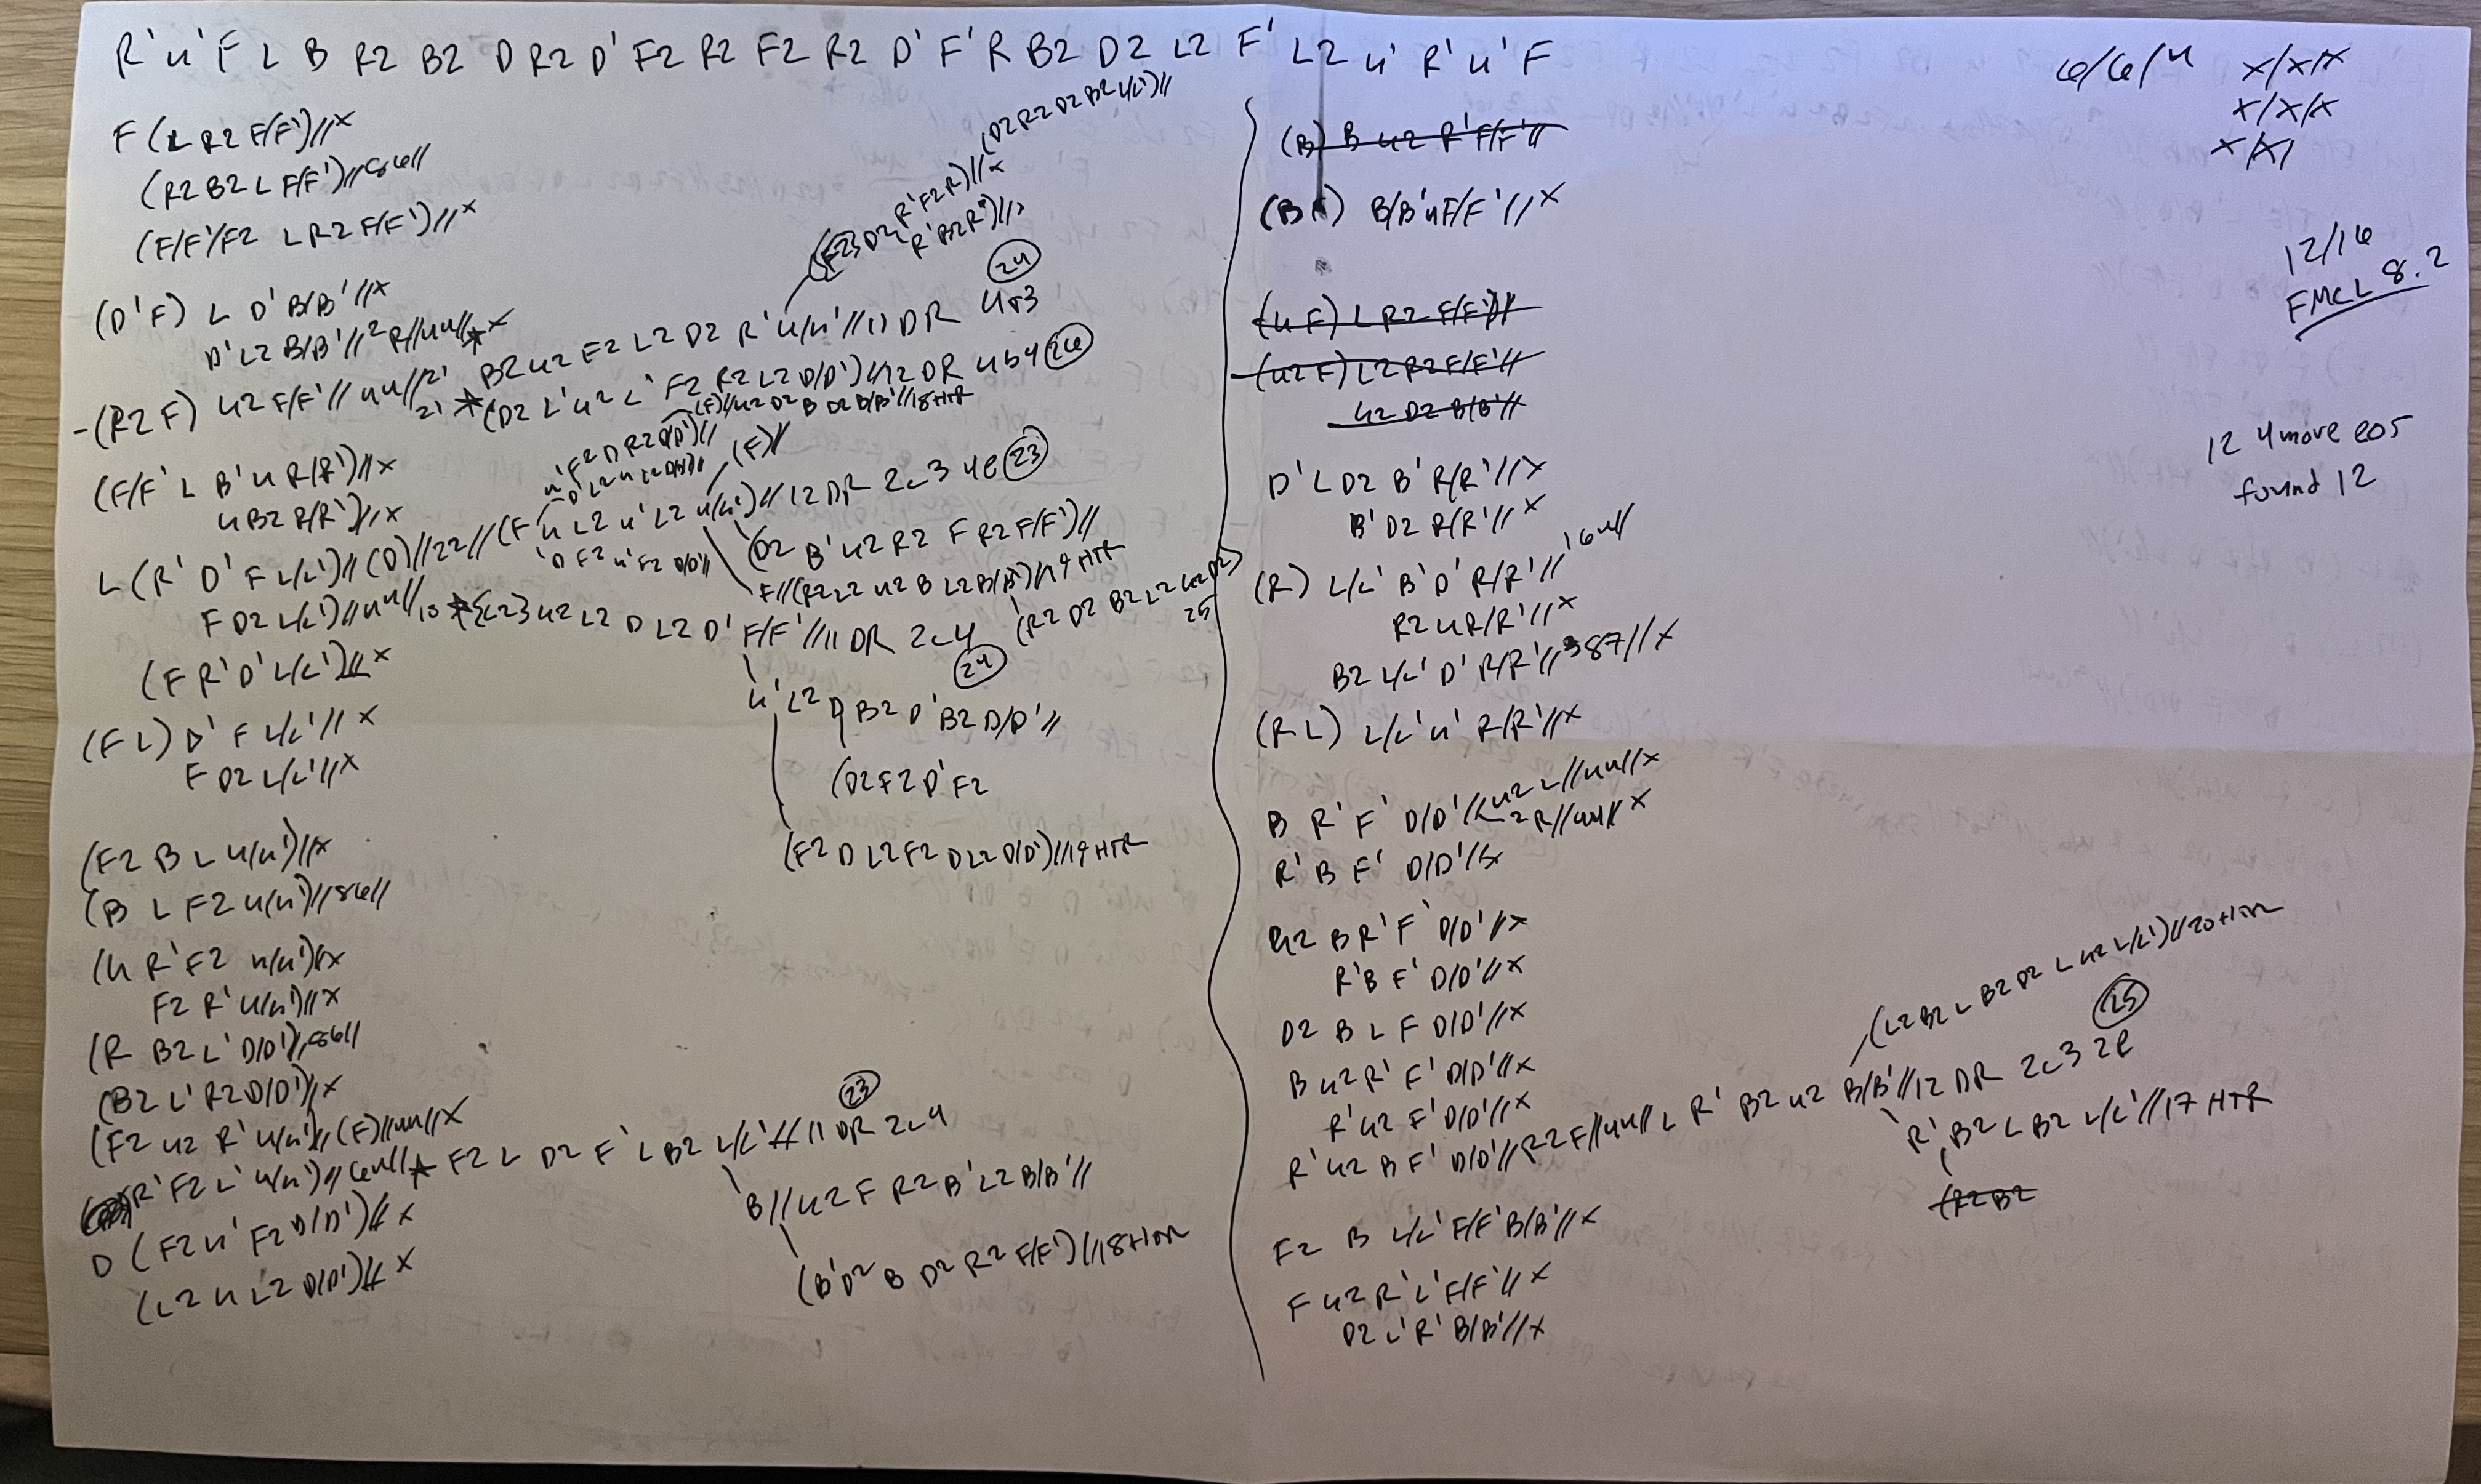 R' u' F L B R2 B2 D R2 D' F2 R2 F2 R2 D' F' R B2 D2 L2 F' L2 u' R' u' F
6/6/4 x/x/x
x/x/x
x/x/
12/16
FMCL 8.2
12 4move eos
found 12
F (L R2 F/F')//x
(R2 B2 L F/F')//
(F/F'/F2 L R2 F/F')//x
(D2 R2 D2 B2 L/L')//
(F2) D2 R'F2R)//x
R'B2R')//x
(D'F) L D' B/B'//x
D'L2 B/B'//2R//null//x
-(R2 F) u2 F/F'//null//21 B2 u2 F2 L2 D2 R' u/u'//11 DR 4a3 (24)
21 (D2 L'u2 L' F2 R2 L2 D/D')//12 DR 4b4 (26)
(F)//u2 D2 B D2 B/B'//18HTR
(F/F' L B' u R/R')//x
u B2 R/R')//x
u'F2 D R2 D/D')//
(F)//
L (R' D' F L/L')//(D)//22//(F u L2 u' L2 u/u')//12 DR 2c3 4e (23)
D F2 u' F2 D/D'//
(D2 B'u2 R2 F R2 F/F')//
F//(R2 L2 u2 B L2 B/B')//19 HTR
F D2 L/L')//null//10 {L2} u2 L2 D L2 D' F/F'//11 DR 2c4 (24)
25
(F R' D' L/L')//x
u' L2 D B2 D' B2 D/D'//
(D2 F2 D' F2
(F2 D L2 F2 D L2 D/D')//19 HTR
(F L) D' F L/L'//x
F D2 L/L'//x
(F2 B L u/u')//x
(B L F2 u/u')//
(u R'F2 u/u')//x
F2 R' u/u')//x
(R B2 L' D/D')//
(B2 L' R2 D/D')//x
(F2 u2 R' u/u')//(F)//null//x
R'F2 L' u/u')// F2 L D2 F' L B2 L/L'//11 DR 2c4 (23)
B//u2 F R2 B' L2 B/B'//
(B'D2 B D2 R2 F/F')//18HTR
D (F2 u' F2 D/D')//x
(L2 u L2 D/D')//x
(B) B u2 R' F/F'//
B/B'u F/F'//x
(u F) L R2 F/F'//
(u2 F) L2 R2 F/F'//
u2 D2 B/B'//
D' L D2 B' R/R'//x
B' D2 R/R'//x
(R) L/L' B' D' R/R'//
R2 u R/R'//x
B2 L/L' D' R/R'//387//x
(R L) L/L' u' R/R'//x
B R' F' D/D'//u2 L//null//x
2R//null//x
R' B F' D/D'//x
u2 B R' F' D/D'//x
R'B F' D/D'//x
D2 B L F D/D'//x
B u2 R' F' D/D'//x
R'u2 F' D/D'//x
R' u2 B F' D/D'//R2 F//null//L R' B2 u2 B/B'//12 DR 2c3 2e (25)
(L2 B2 L B2 D2 L u2 L/L')//20HTR
R' B2 L B2 L/L'//17 HTR
(R2 B2
F2 B L/L' F/F' B/B'//x
F u2 R' L' F/F'//x
D2 L' R' B/B'//x